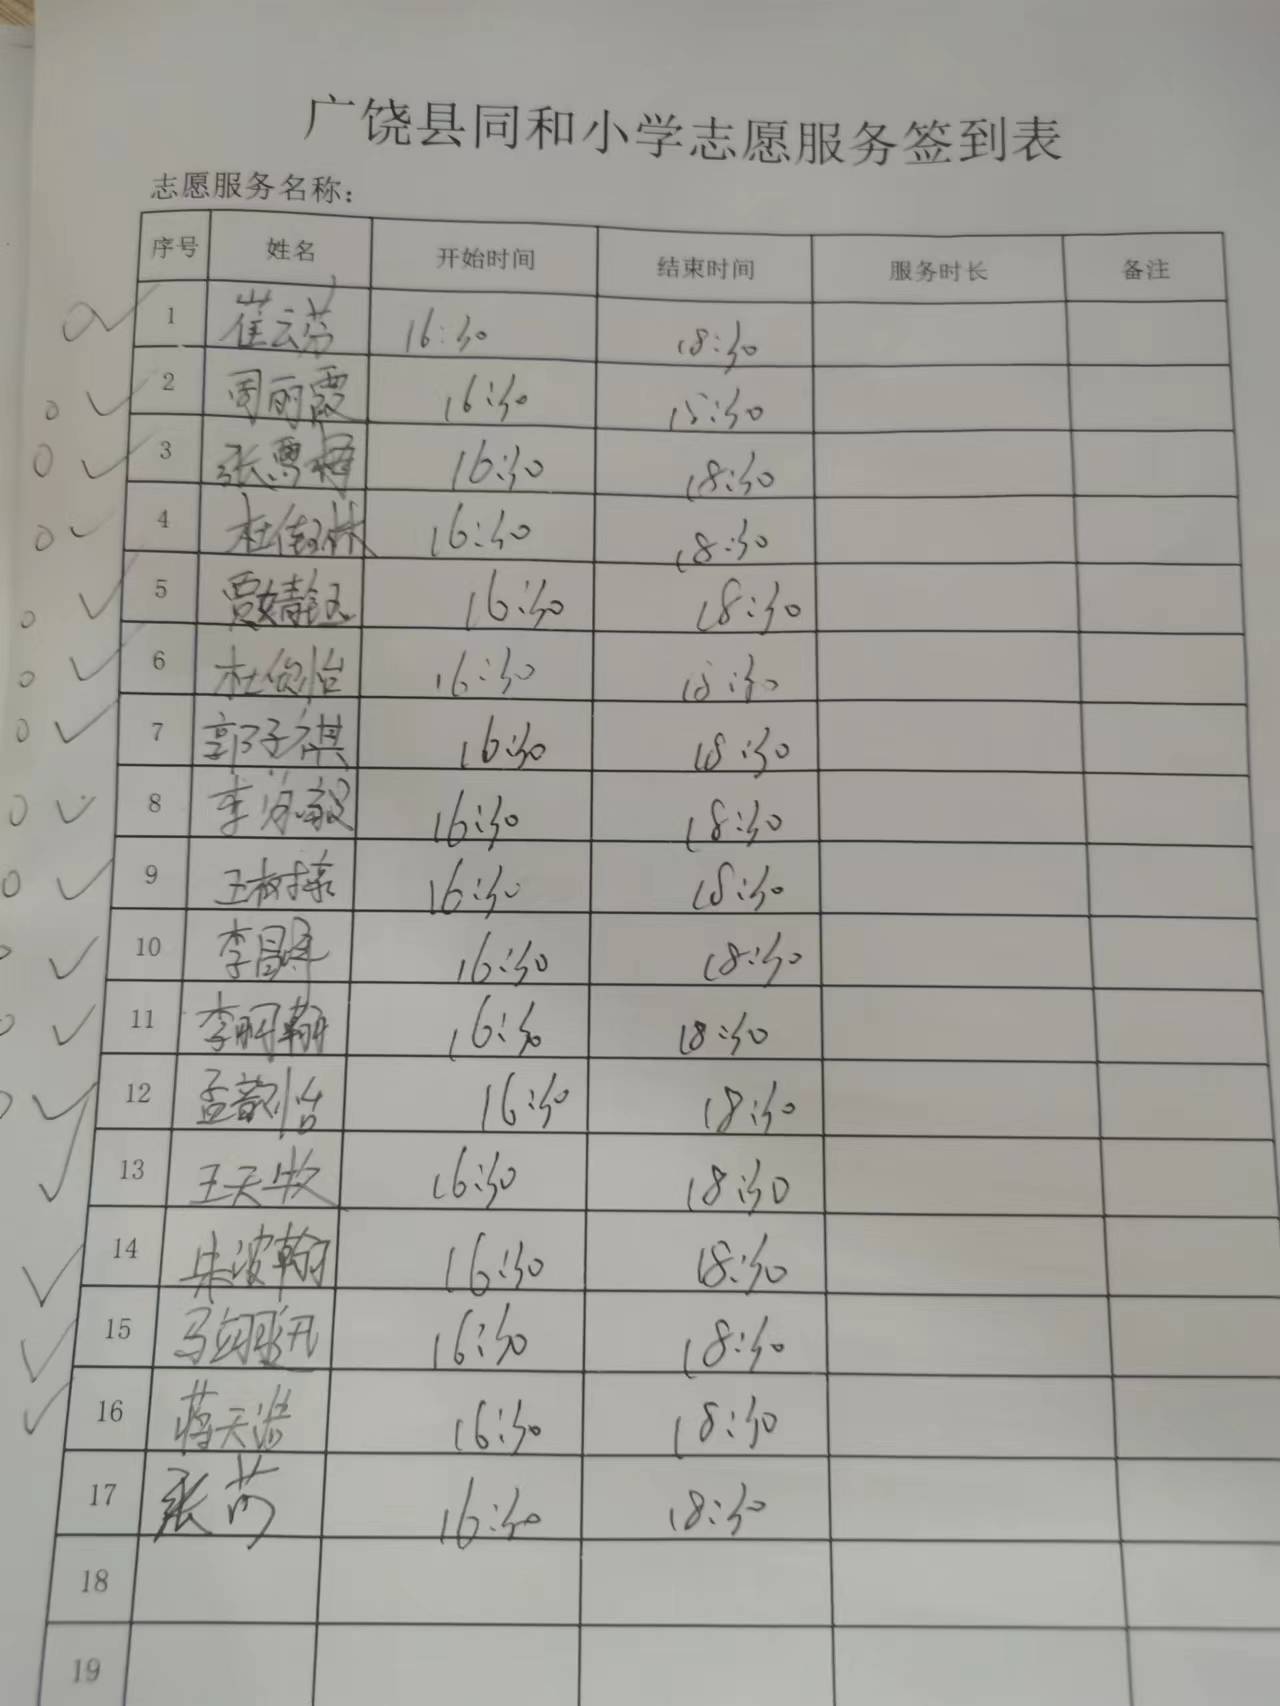 广饶县同和小学志愿服务签到表
志愿服务名称：
序号 姓名 开始时间 结束时间 服务时长 备注
1 崔云芬 16:30 18:30
2 周丽霞 16:30 15:30
3 张雪梅 16:30 18:30
4 杜 林 16:30 18:30
5 贾婧钰 16:30 18:30
6 杜俊怡 16:30 18:30
7 郭子祺 16:30 18:30
8 李 毅 16:30 18:30
9 王树 16:30 18:30
10 李昌 16:30 18:30
11 李明翰 16:30 18:30
12 孟歆怡 16:30 18:30
13 王天牧 16:30 18:30
14 朱浚翰 16:30 18:30
15 马翊 16:30 18:30
16 蒋天浩 16:30 18:30
17 张芮 16:30 18:30
18
19